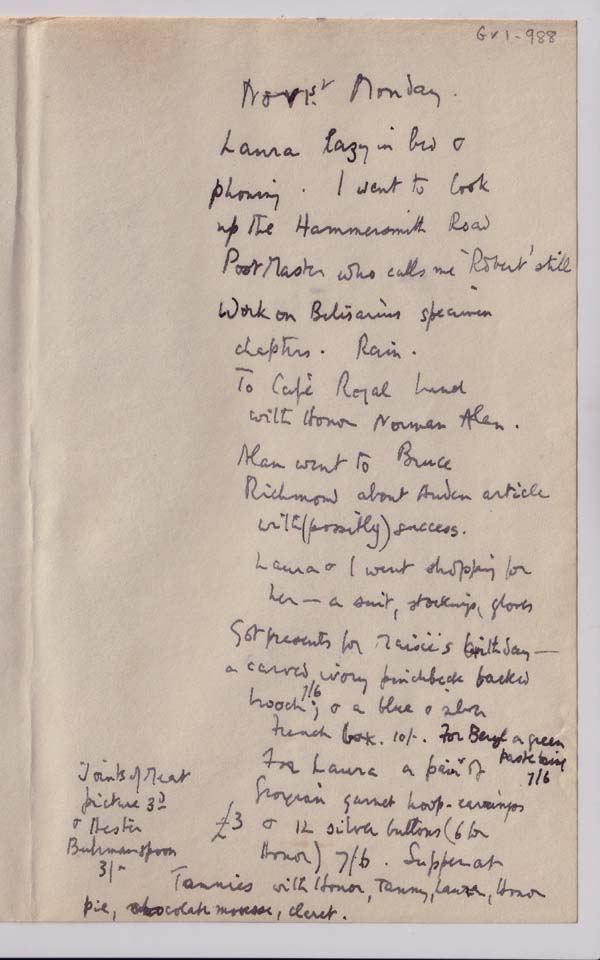 GV1-988
Nov 1st Monday.
Laura lazy in bed &
phoning. I went to look
up the Hammersmith Road
Post Master who calls me 'Robert' still
Work on Belisarius specimen
chapters. Rain.
To Café Royal lunch
with Honor Norman Alan.
Alan went to Bruce
Richmond about Auden article
with (possibly) success.
Laura & I went shopping for
her — a suit, stockings, gloves
Got presents for Maisie's birthday —
a carved ivory pinchbeck backed
brooch 7/6; & a blue & silver
French box. 10/-. For Beryl a green
paste ring
7/6
For Laura a pair of
Georgian garnet hoop-earrings
£3 & 12 silver buttons (6 for
Honor) 7/6. Supper at
Tammies with Honor, Tammy, Laura, Honor
pie, chocolate mousse, claret.
Joints of Meat
picture 3d
& Hester
spoon
3/-